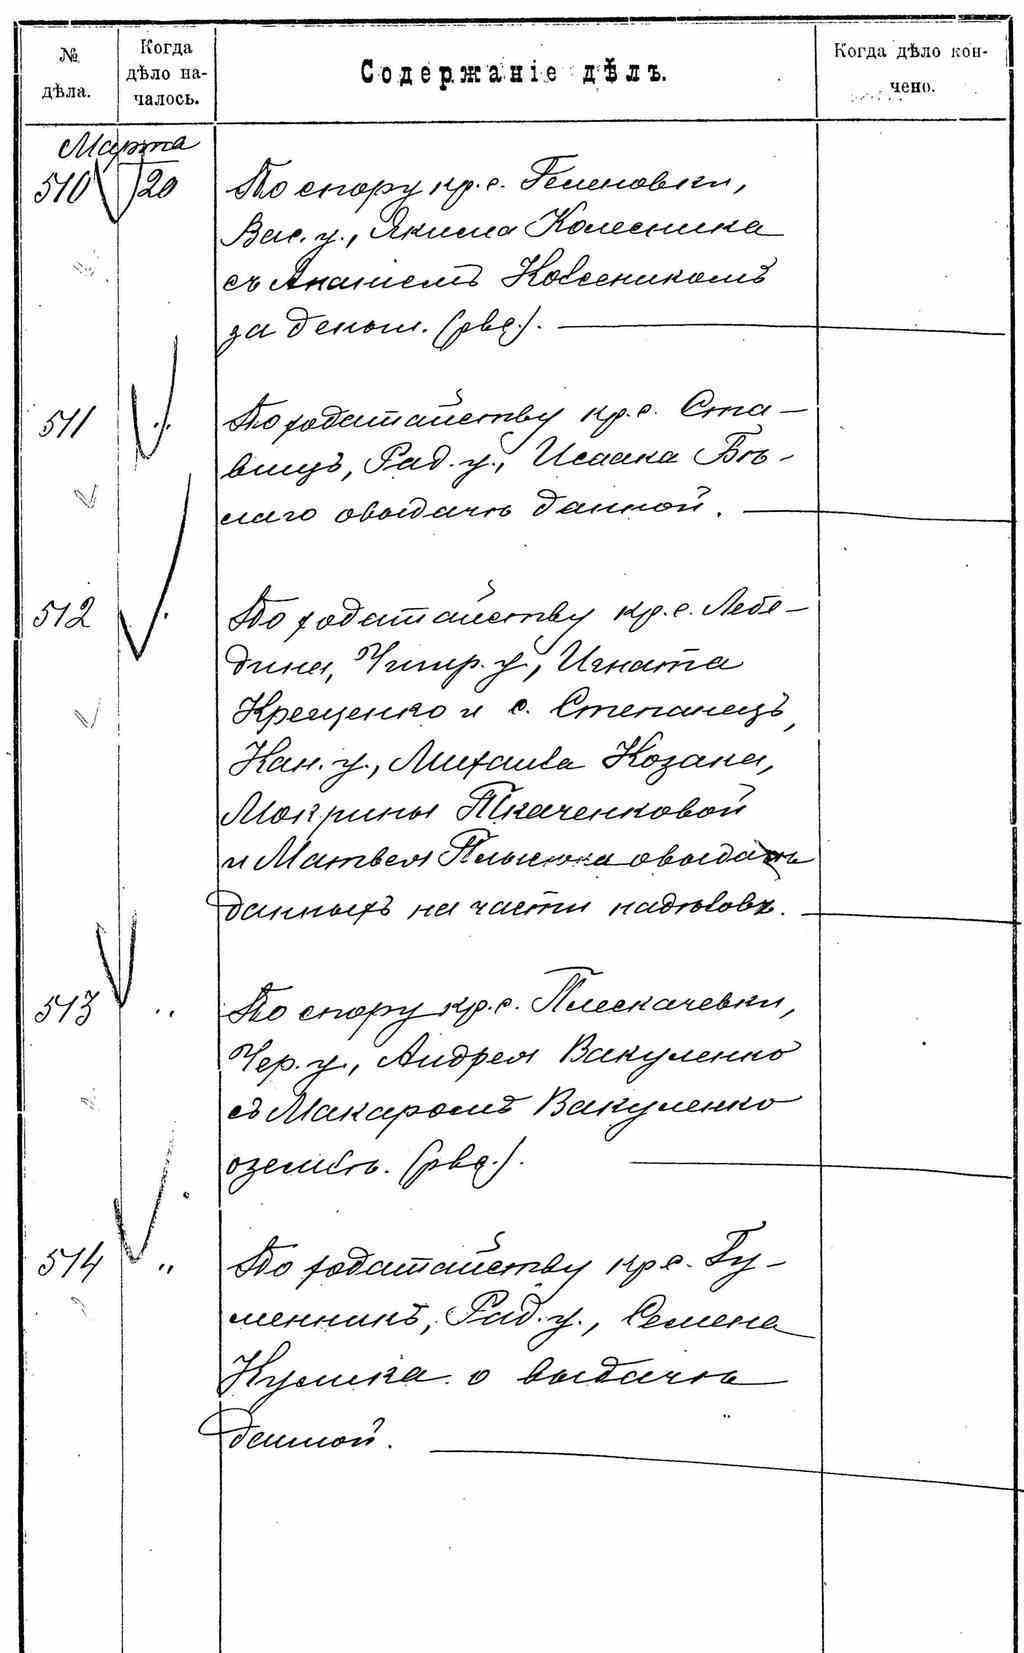 № дѣла.
Когда дѣло началось.
Содержаніе дѣлъ.
Когда дѣло кончено.
Марта
510 20 По спору кр. с. Геленовки,
Вас. у., Якима Колесника
съ Ананіемъ Колесникомъ
за деньги. (рвс.).
511 " По ходатайству кр. с. Ста-
вищъ, Рад. у., Исаака Бѣ-
лаго о выдачѣ данной.
512 " По ходатайству кр. с. Лебе-
дина, Чигир. у., Игната
Крещенко и с. Степанецъ,
Кан. у., Михаила Козака,
Мокрины Ткаченковой
и Матвея о выдачѣ
данныхъ на части надѣловъ.
513 " По спору кр. с. Плескачевки,
Чер. у., Андрея Вакуленко
съ Макаромъ Вакуленко
о землѣ. (рвс.).
514 " По ходатайству кр. с. Гу-
менникъ, Рад. у., Семена
Кулика о выдачѣ
данной.